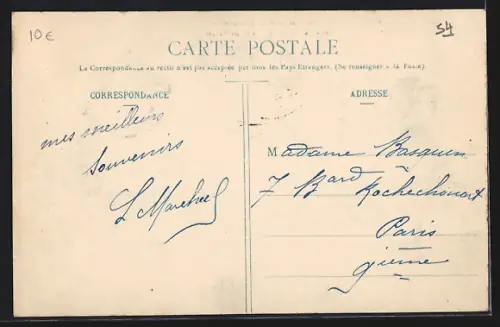 10€
54
CARTE POSTALE
La Correspondance au recto n'est pas acceptée par tous les Pays Etrangers. (Se renseigner à la Poste).
CORRESPONDANCE
ADRESSE
mes meilleurs
souvenirs
L Marchal
Madame Basquin
7 Bard Rochechouart
Paris
9ième